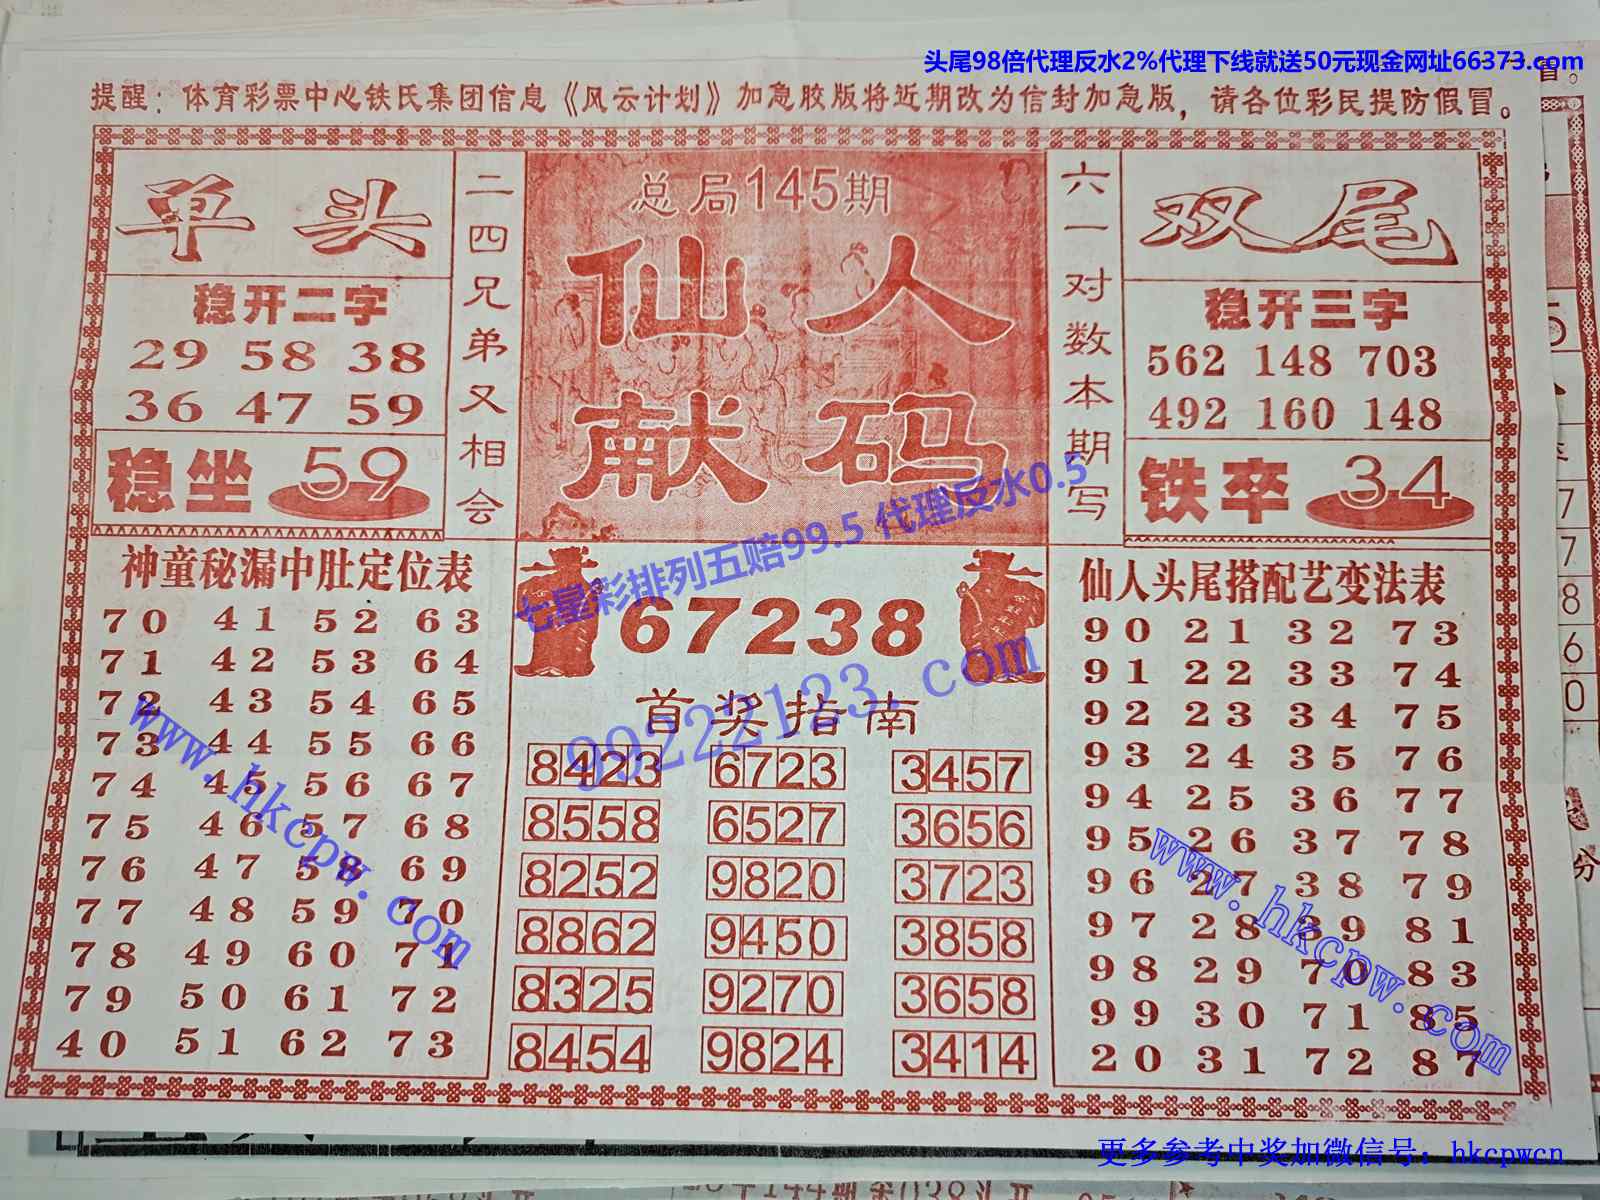 头尾98倍代理反水2%代理下线就送50元现金网址66373.com
提醒：体育彩票中心铁氏集团信息《风云计划》加急胶版将近期改为信封加急版，请各位彩民提防假冒。
单头
稳开二字
29 58 38
36 47 59
稳坐 59
二四兄弟又相会
总局145期
仙人
献码
六一对数本期写
双尾
稳开三字
562 148 703
492 160 148
铁卒 34
七星彩排列五赔99.5 代理反水0.5
神童秘漏中肚定位表
70 41 52 63
71 42 53 64
72 43 54 65
73 44 55 66
74 45 56 67
75 46 57 68
76 47 58 69
77 48 59 70
78 49 60 71
79 50 61 72
40 51 62 73
www.hkcpw.com
67238
99222123.com
首奖指南
8423 6723 3457
8558 6527 3656
8252 9820 3723
8862 9450 3858
8325 9270 3658
8454 9824 3414
仙人头尾搭配艺变法表
90 21 32 73
91 22 33 74
92 23 34 75
93 24 35 76
94 25 36 77
95 26 37 78
96 27 38 79
97 28 39 81
98 29 70 83
99 30 71 85
20 31 72 87
www.hkcpw.com
更多参考中奖加微信号：hkcpwcn